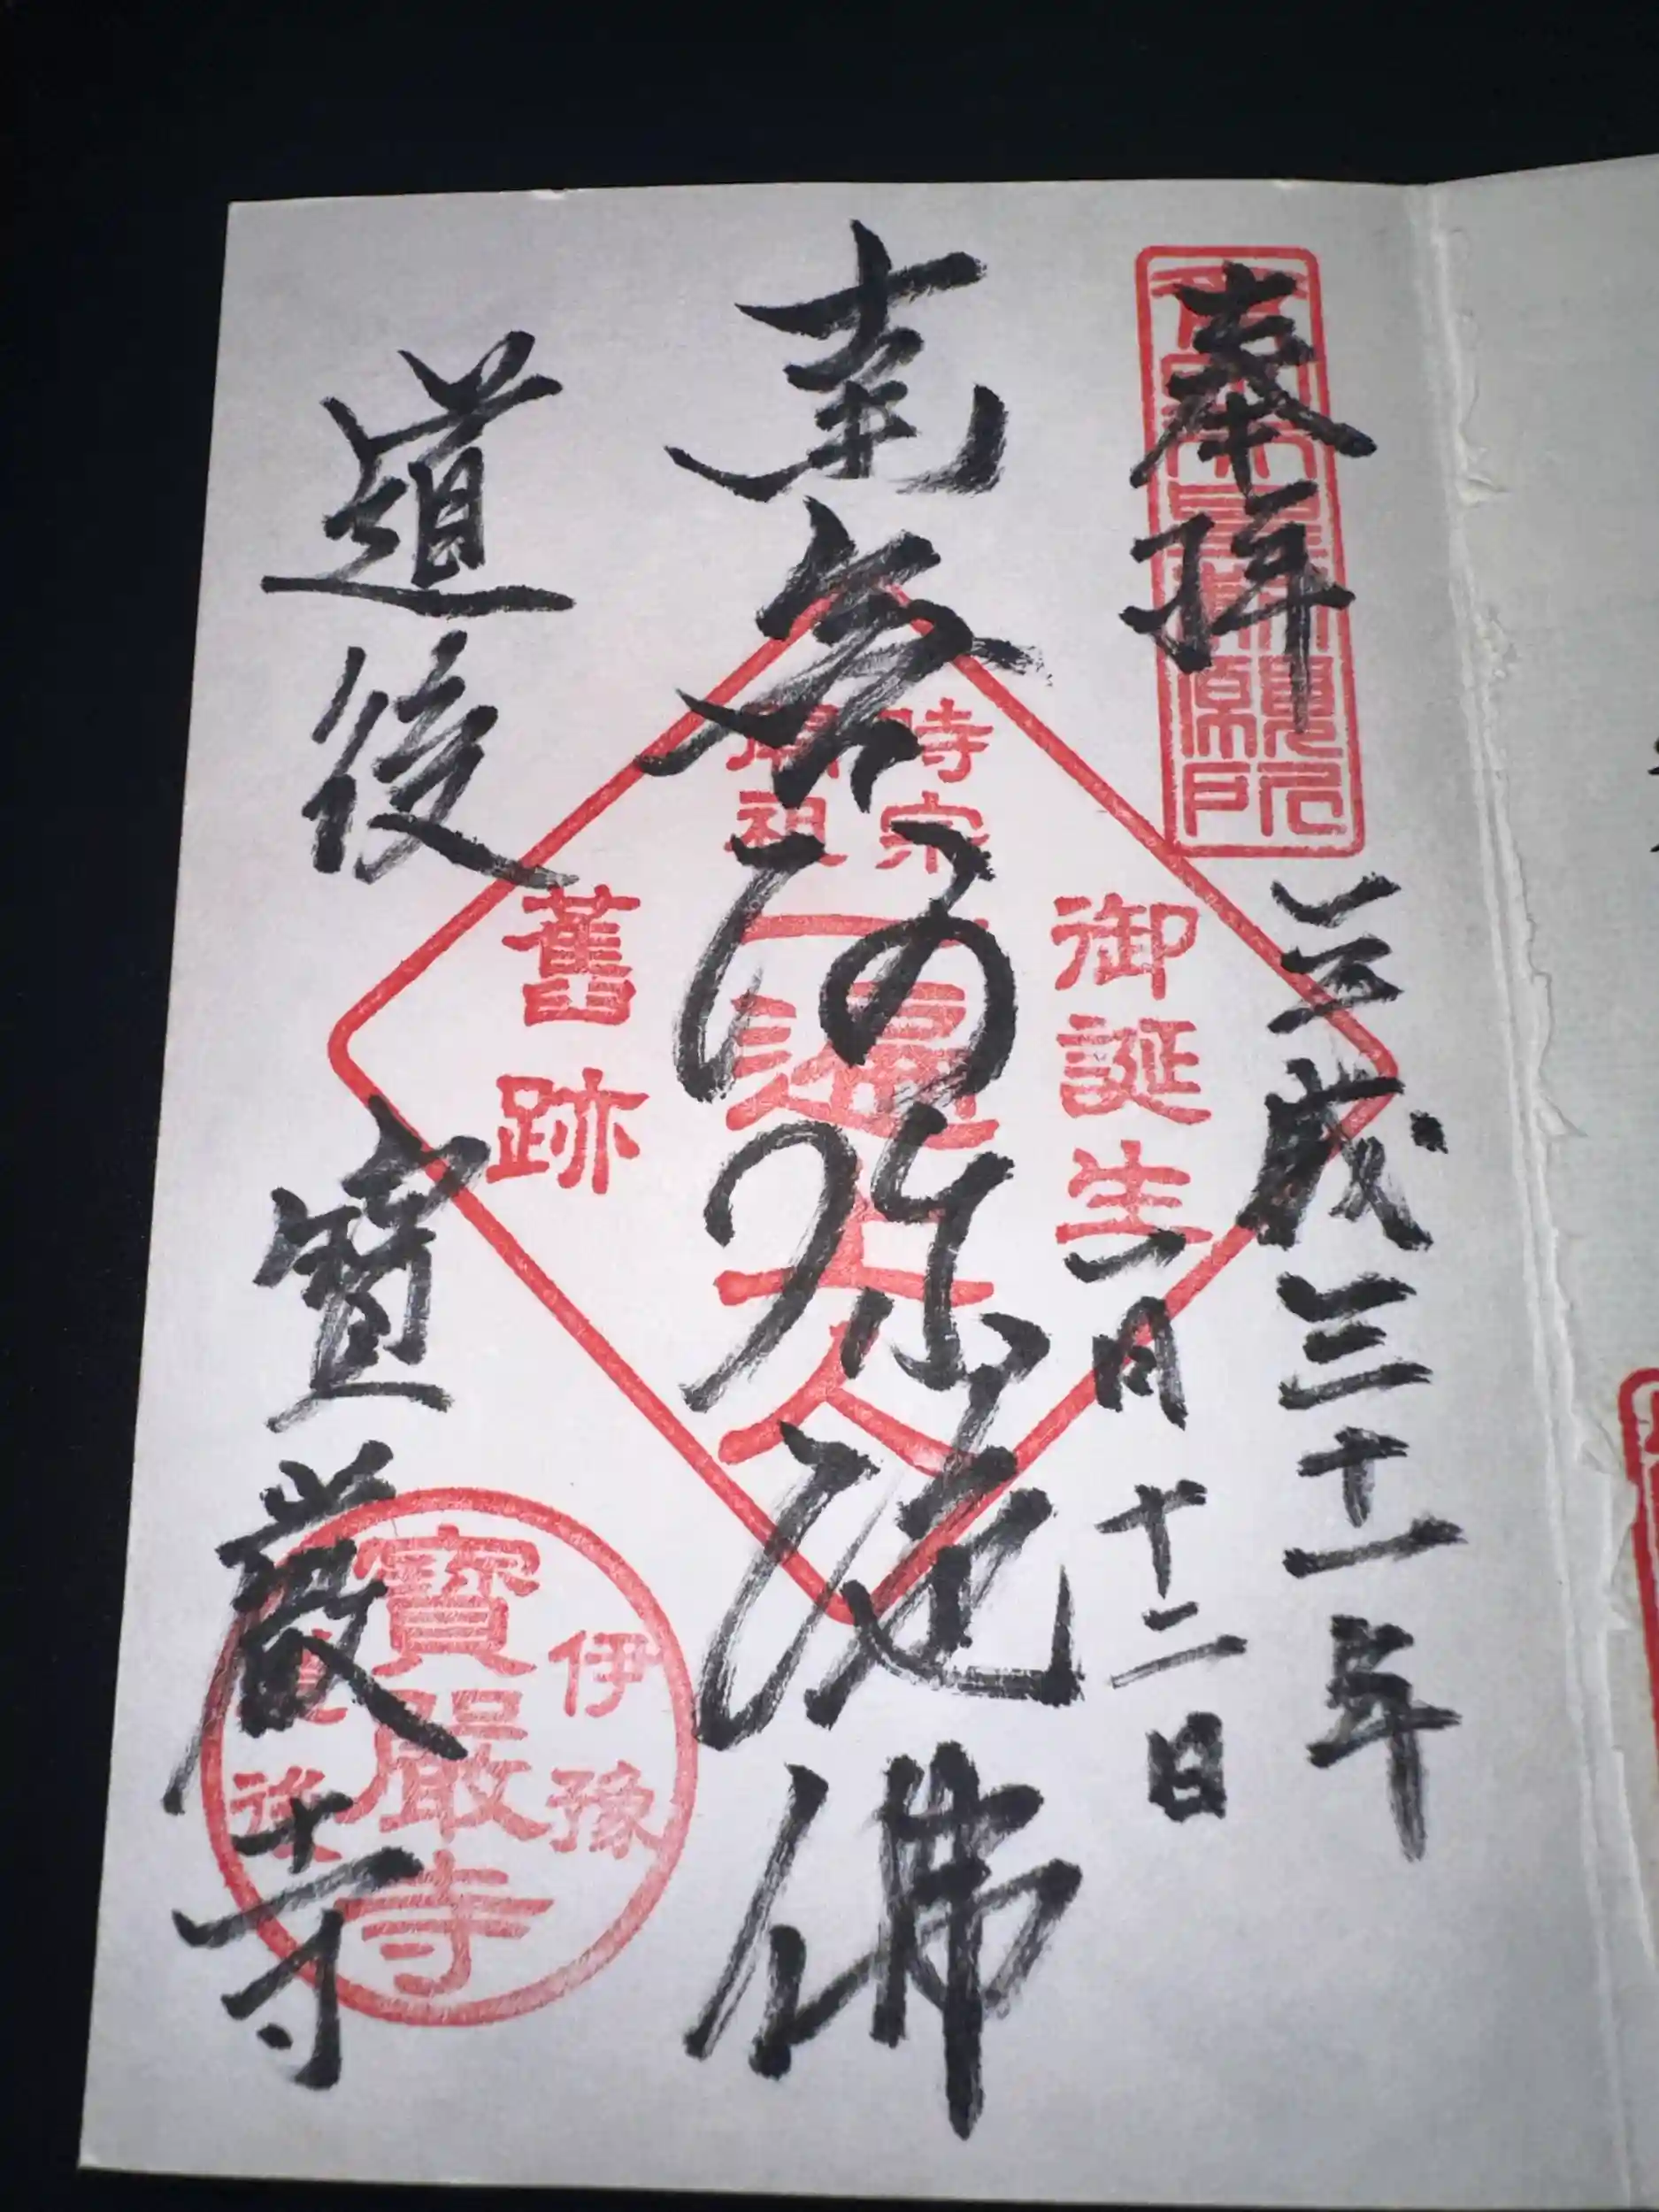 奉拝
平成三十一年
一月十二日
南無阿弥陀佛
道後 寶厳寺
御誕生
時宗
開祖
一遍上人
舊跡
伊豫
寶嚴寺
道後